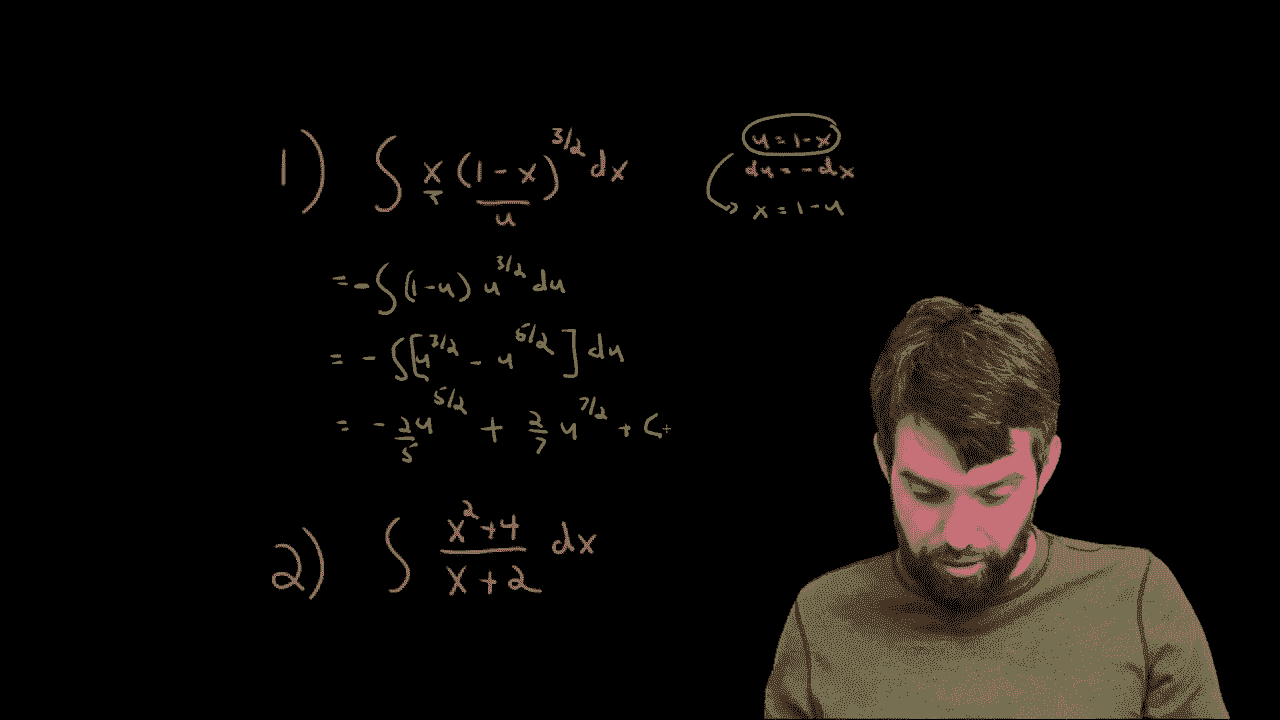 1) ∫ x (1-x)^{3/2} dx
u
u = 1-x
du = -dx
x = 1-u
= -∫ (1-u) u^{3/2} du
= -∫ [u^{3/2} - u^{5/2}] du
= -2/5 u^{5/2} + 2/7 u^{7/2} + C
2) ∫ (x²+4)/(x+2) dx